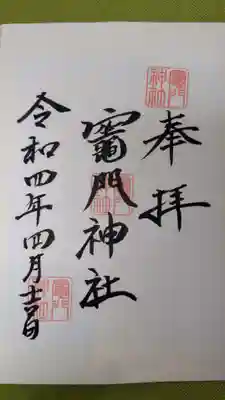 奉拝
竈門神社
令和四年四月十七日